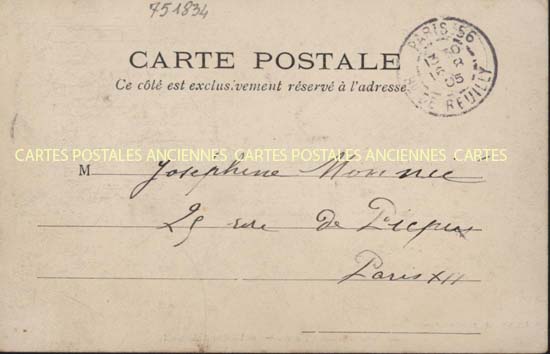 751834
CARTE POSTALE
Ce côté est exclusivement réservé à l'adresse
PARIS 56
REUILLY
CARTES POSTALES ANCIENNES CARTES POSTALES ANCIENNES CARTES POSTALES
M Joséphine
25 rue de Picpus
Paris XII